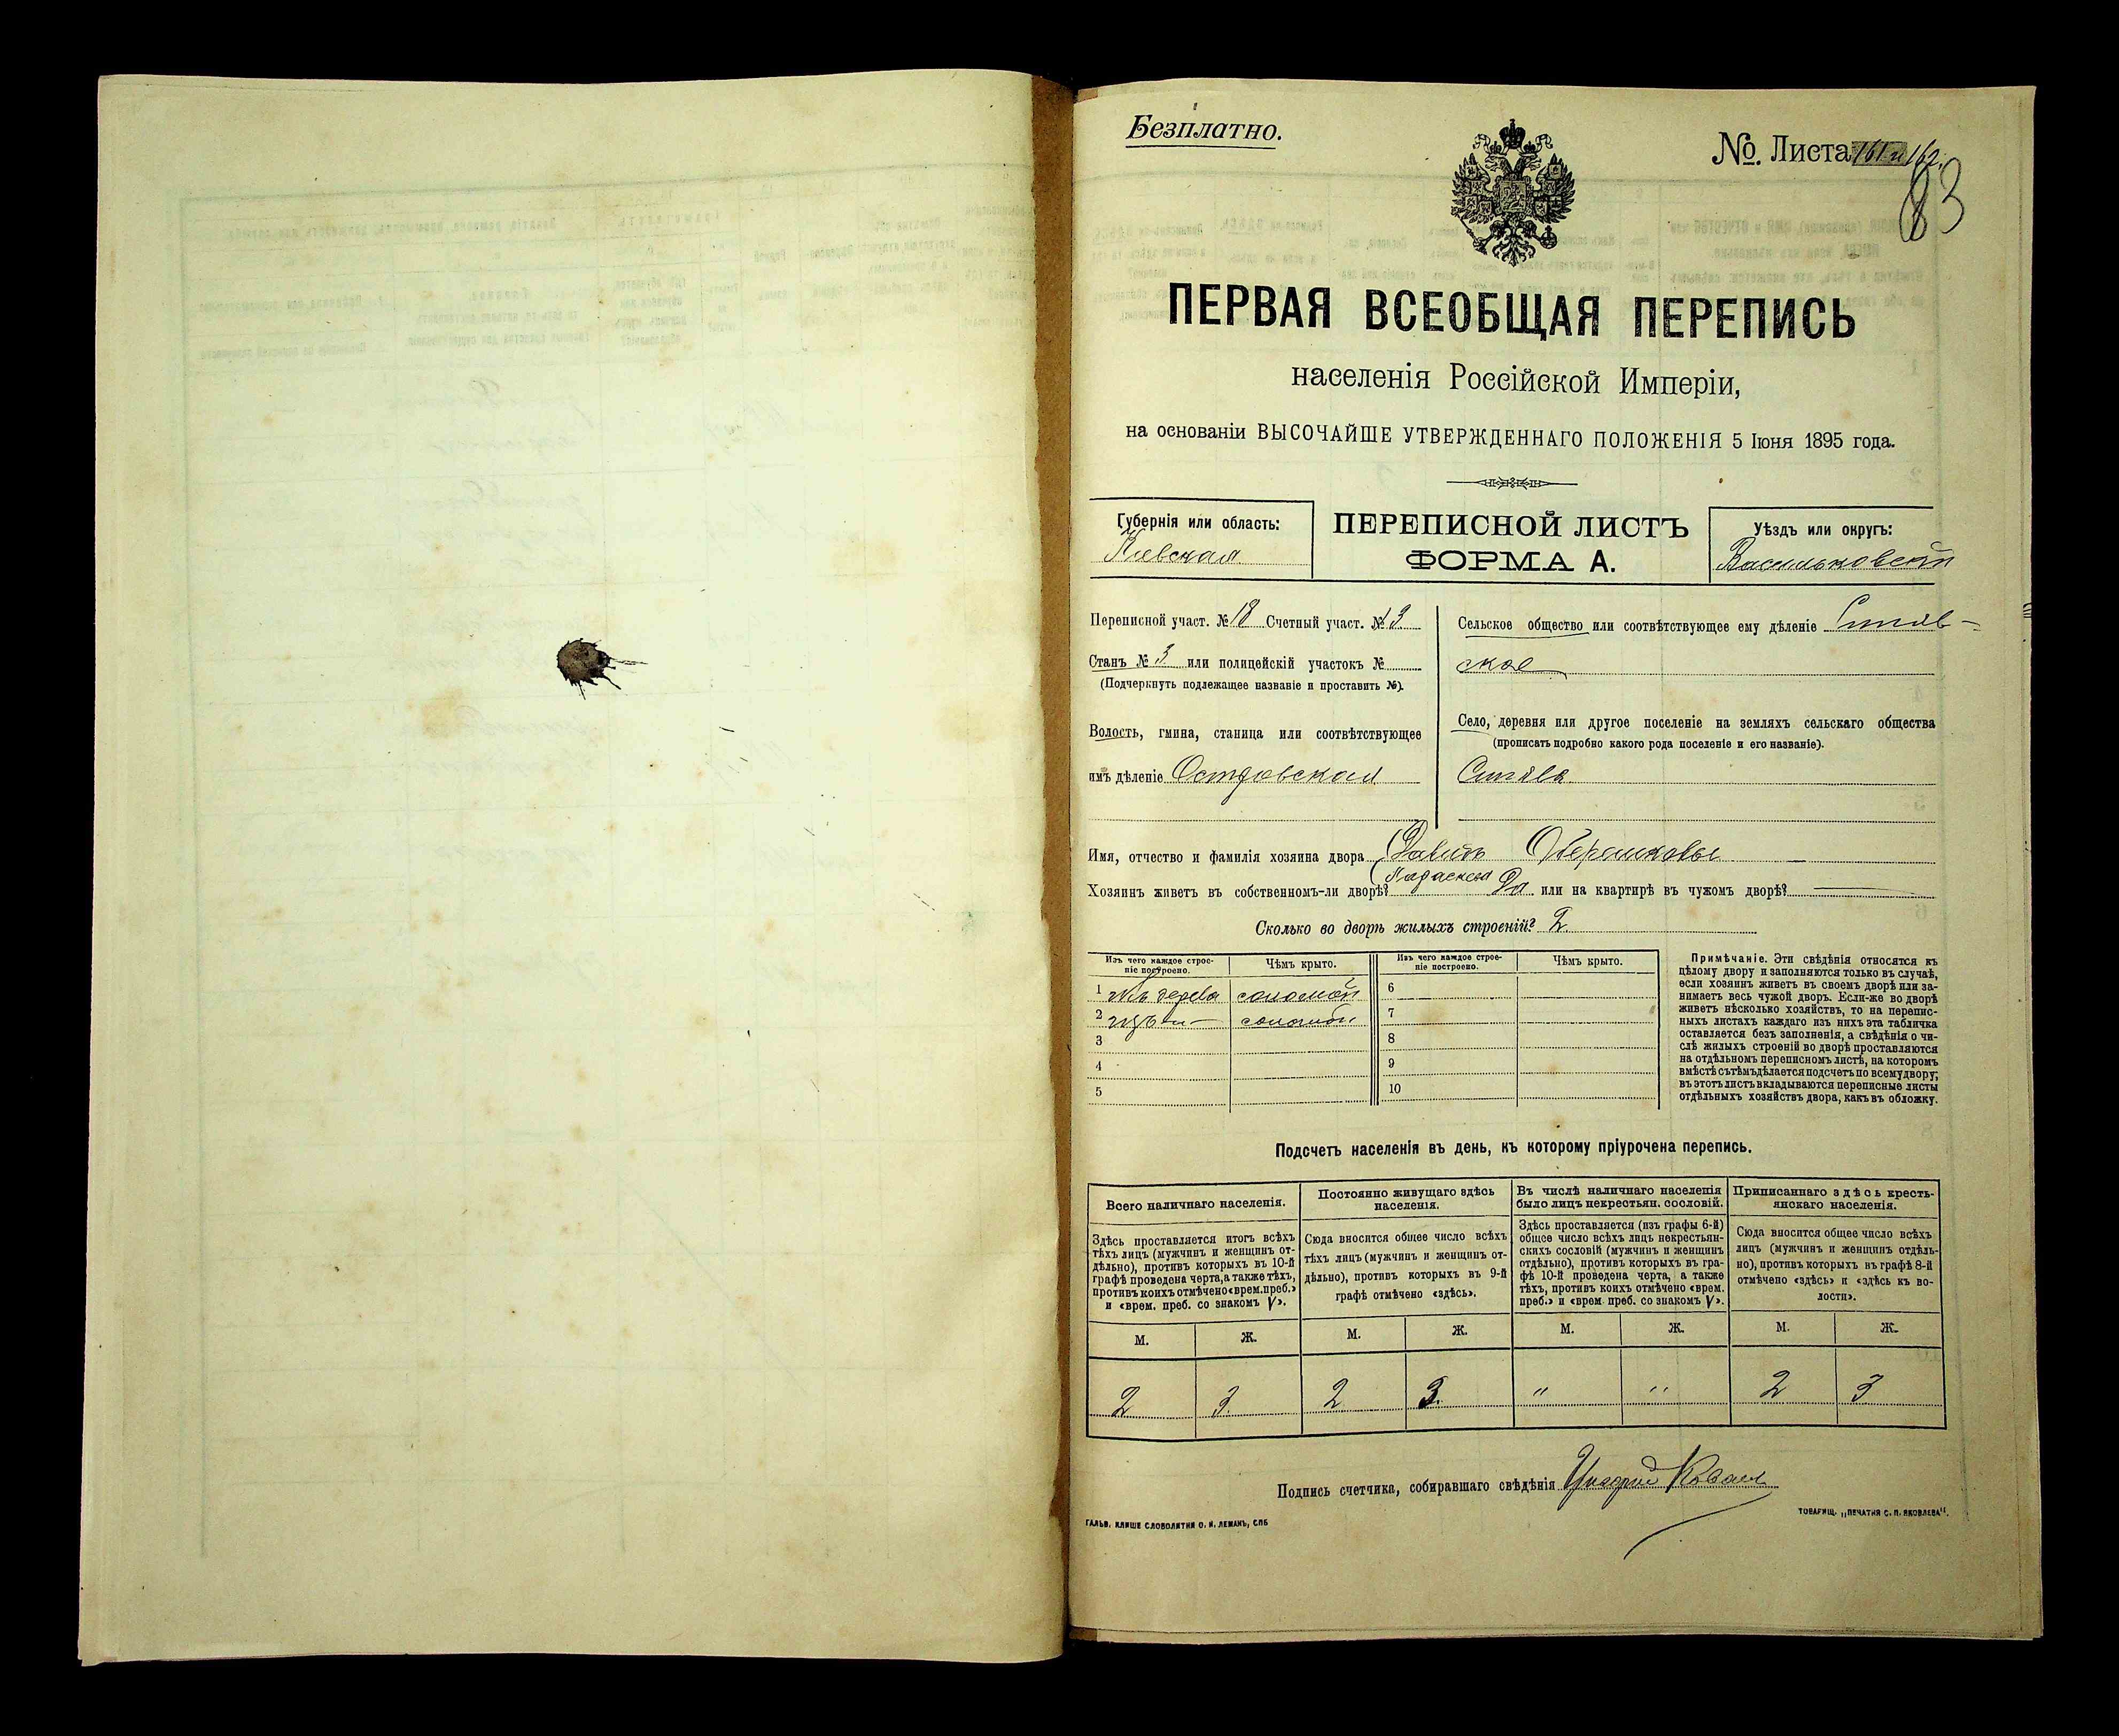 Безплатно.
№. Листа 161 и 162.
83
ПЕРВАЯ ВСЕОБЩАЯ ПЕРЕПИСЬ
населенія Россійской Имперіи,
на основаніи ВЫСОЧАЙШЕ УТВЕРЖДЕННАГО ПОЛОЖЕНІЯ 5 Іюня 1895 года.
Губернія или область:
Кіевская
ПЕРЕПИСНОЙ ЛИСТЪ
ФОРМА А.
Уѣздъ или округъ:
Васильковскій
Переписной участ. № 18 Счетный участ. № 3
Станъ № 3 или полицейскій участокъ №
(Подчеркнуть подлежащее названіе и проставить №).
Волость, гмина, станица или соотвѣтствующее
имъ дѣленіе Островская
Сельское общество или соотвѣтствующее ему дѣленіе Синяв-
ское
Село, деревня или другое поселеніе на земляхъ сельскаго общества
(прописать подробно какого рода поселеніе и его названіе).
Синява
Имя, отчество и фамилія хозяина двора Давидъ
Параскева
Хозяинъ живетъ въ собственномъ-ли дворѣ? Да или на квартирѣ въ чужомъ дворѣ?
Сколько во дворѣ жилыхъ строеній? 2
Изъ чего каждое строе-
ніе построено.
Чѣмъ крыто.
Изъ чего каждое строе-
ніе построено.
Чѣмъ крыто.
1 изъ дерева соломой
2 соломой
3
4
5
6
7
8
9
10
Примѣчаніе. Эти свѣдѣнія относятся къ
цѣлому двору и заполняются только въ случаѣ,
если хозяинъ живетъ въ своемъ дворѣ или за-
нимаетъ весь чужой дворъ. Если-же во дворѣ
живетъ нѣсколько хозяйствъ, то на перепис-
ныхъ листахъ каждаго изъ нихъ эта табличка
оставляется безъ заполненія, а свѣдѣнія о чи-
слѣ жилыхъ строеній во дворѣ проставляются
на отдѣльномъ переписномъ листѣ, на которомъ
вмѣстѣ съ тѣмъ дѣлается подсчетъ по всему двору;
въ этотъ листъ вкладываются переписные листы
отдѣльныхъ хозяйствъ двора, какъ въ обложку.
Подсчетъ населенія въ день, къ которому пріурочена перепись.
Всего наличнаго населенія.
Здѣсь проставляется итогъ всѣхъ
тѣхъ лицъ (мужчинъ и женщинъ от-
дѣльно), противъ которыхъ въ 10-й
графѣ проведена черта, а также тѣхъ,
противъ коихъ отмѣчено «врем. преб.»
и «врем. преб. со знакомъ V».
Постоянно живущаго здѣсь
населенія.
Сюда вносится общее число всѣхъ
тѣхъ лицъ (мужчинъ и женщинъ от-
дѣльно), противъ которыхъ въ 9-й
графѣ отмѣчено «здѣсь».
Въ числѣ наличнаго населенія
было лицъ некрестьян. сословій.
Здѣсь проставляется (изъ графы 6-й)
общее число всѣхъ лицъ некрестьян-
скихъ сословій (мужчинъ и женщинъ
отдѣльно), противъ которыхъ въ гра-
фѣ 10-й проведена черта, а также
тѣхъ, противъ коихъ отмѣчено «врем.
преб.» и «врем. преб. со знакомъ V».
Приписаннаго здѣсь кресть-
янскаго населенія.
Сюда вносится общее число всѣхъ
лицъ (мужчинъ и женщинъ отдѣль-
но), противъ которыхъ въ графѣ 8-й
отмѣчено «здѣсь» и «здѣсь къ во-
лости».
М. Ж. М. Ж. М. Ж. М. Ж.
2 3 2 3 " " 2 3
Подпись счетчика, собиравшаго свѣдѣнія
ГАЛЬВ. КЛИШЕ СЛОВОЛИТНИ О. И. ЛЕМАНЪ, СПБ
ТОВАРИЩ. „ПЕЧАТНЯ С. П. ЯКОВЛЕВА".